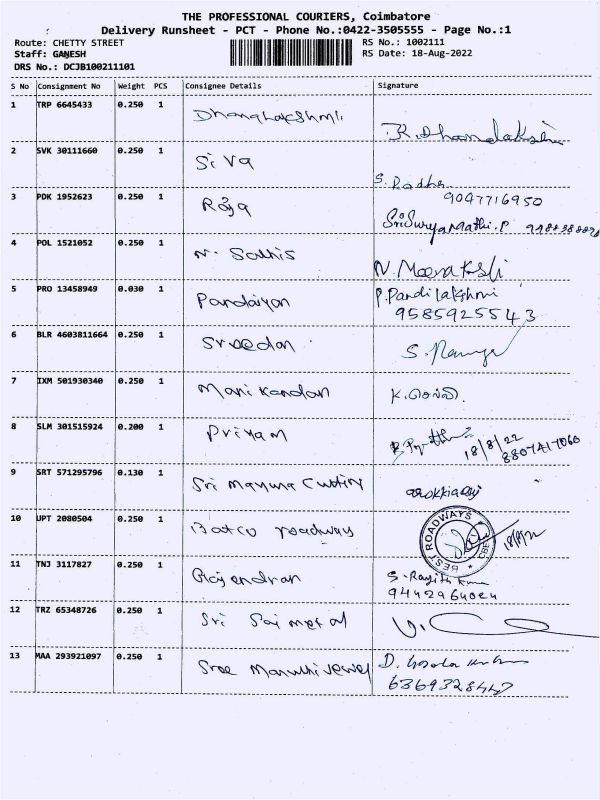 THE PROFESSIONAL COURIERS, Coimbatore
Delivery Runsheet - PCT - Phone No.:0422-3505555 - Page No.:1
Route: CHETTY STREET
RS No.: 1002111
Staff: GANESH
RS Date: 18-Aug-2022
DRS No.: DCJB100211101
S No Consignment No Weight PCS Consignee Details Signature
1 TRP 6645433 0.250 1 Dhanalakshmi
2 SVK 30111660 0.250 1 Siva S. Radha
9047716950
3 PDK 1952623 0.250 1 Raja
4 POL 1521052 0.250 1 N. Sathis N. Meenakshi
5 PRO 13458949 0.030 1 Pandaiyan P. Pandilakshmi
9585925543
6 BLR 4603811664 0.250 1 Sreedan
7 IXM 501930340 0.250 1 Manikandan
8 SLM 301515924 0.200 1 Priyam 18/8/22
8807417060
9 SRT 571295796 0.130 1 Sri Mayura
10 UPT 2080504 0.250 1 roadways BEST ROADWAYS CBE
11 TNJ 3117827 0.250 1 Rajendran
9442964024
12 TRZ 65348726 0.250 1 Sri Sai metal
13 MAA 293921097 0.250 1 Sree Maruthi Jewel
6369328447